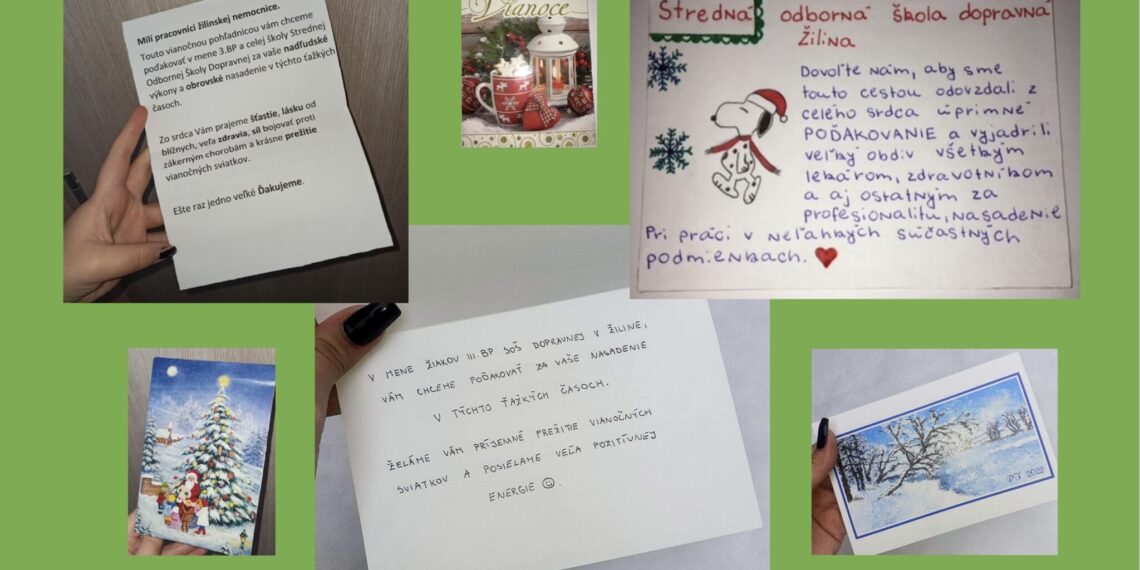 Milí pracovníci žilinskej nemocnice.
Touto vianočnou pohľadnicou vám chceme
poďakovať v mene 3.BP a celej školy Strednej
Odbornej Školy Dopravnej za vaše nadľudské
výkony a obrovské nasadenie v týchto ťažkých
časoch.
Zo srdca Vám prajeme šťastie, lásku od
blížnych, veľa zdravia, síl bojovať proti
zákerným chorobám a krásne prežitie
vianočných sviatkov.
Ešte raz jedno veľké Ďakujeme.
Vianoce
Stredná odborná škola dopravná
Žilina
Dovoľte nám, aby sme
touto cestou odovzdali z
celého srdca úprimné
POĎAKOVANIE a vyjadrili
veľký obdiv všetkým
lekárom, zdravotníkom
a aj ostatným za
profesionalitu, nasadenie
Pri práci v neľahkých súčastných
podmienkach.
V MENE ŽIAKOV III.BP SOŠ DOPRAVNEJ V ŽILINE,
VÁM CHCEME POĎAKOVAŤ ZA VAŠE NASADENIE
V TÝCHTO ŤAŽKÝCH ČASOCH.
ŽELÁME VÁM PRÍJEMNÉ PREŽITIE VIANOČNÝCH
SVIATKOV A POSIELAME VEĽA POZITÍVNEJ
ENERGIE ☺.
PT 2022